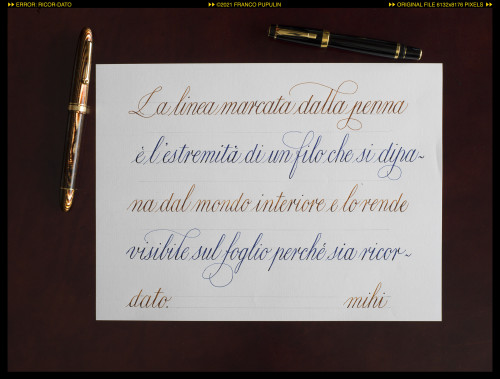 ERROR: RICOR-DATO ©2021 FRANCO PUPULIN ORIGINAL FILE 8132x8176 PIXELS
La linea marcata dalla penna
è l'estremità di un filo che si dipa~
na dal mondo interiore e lo rende
visibile sul foglio perché sia ricor~
dato. mihi